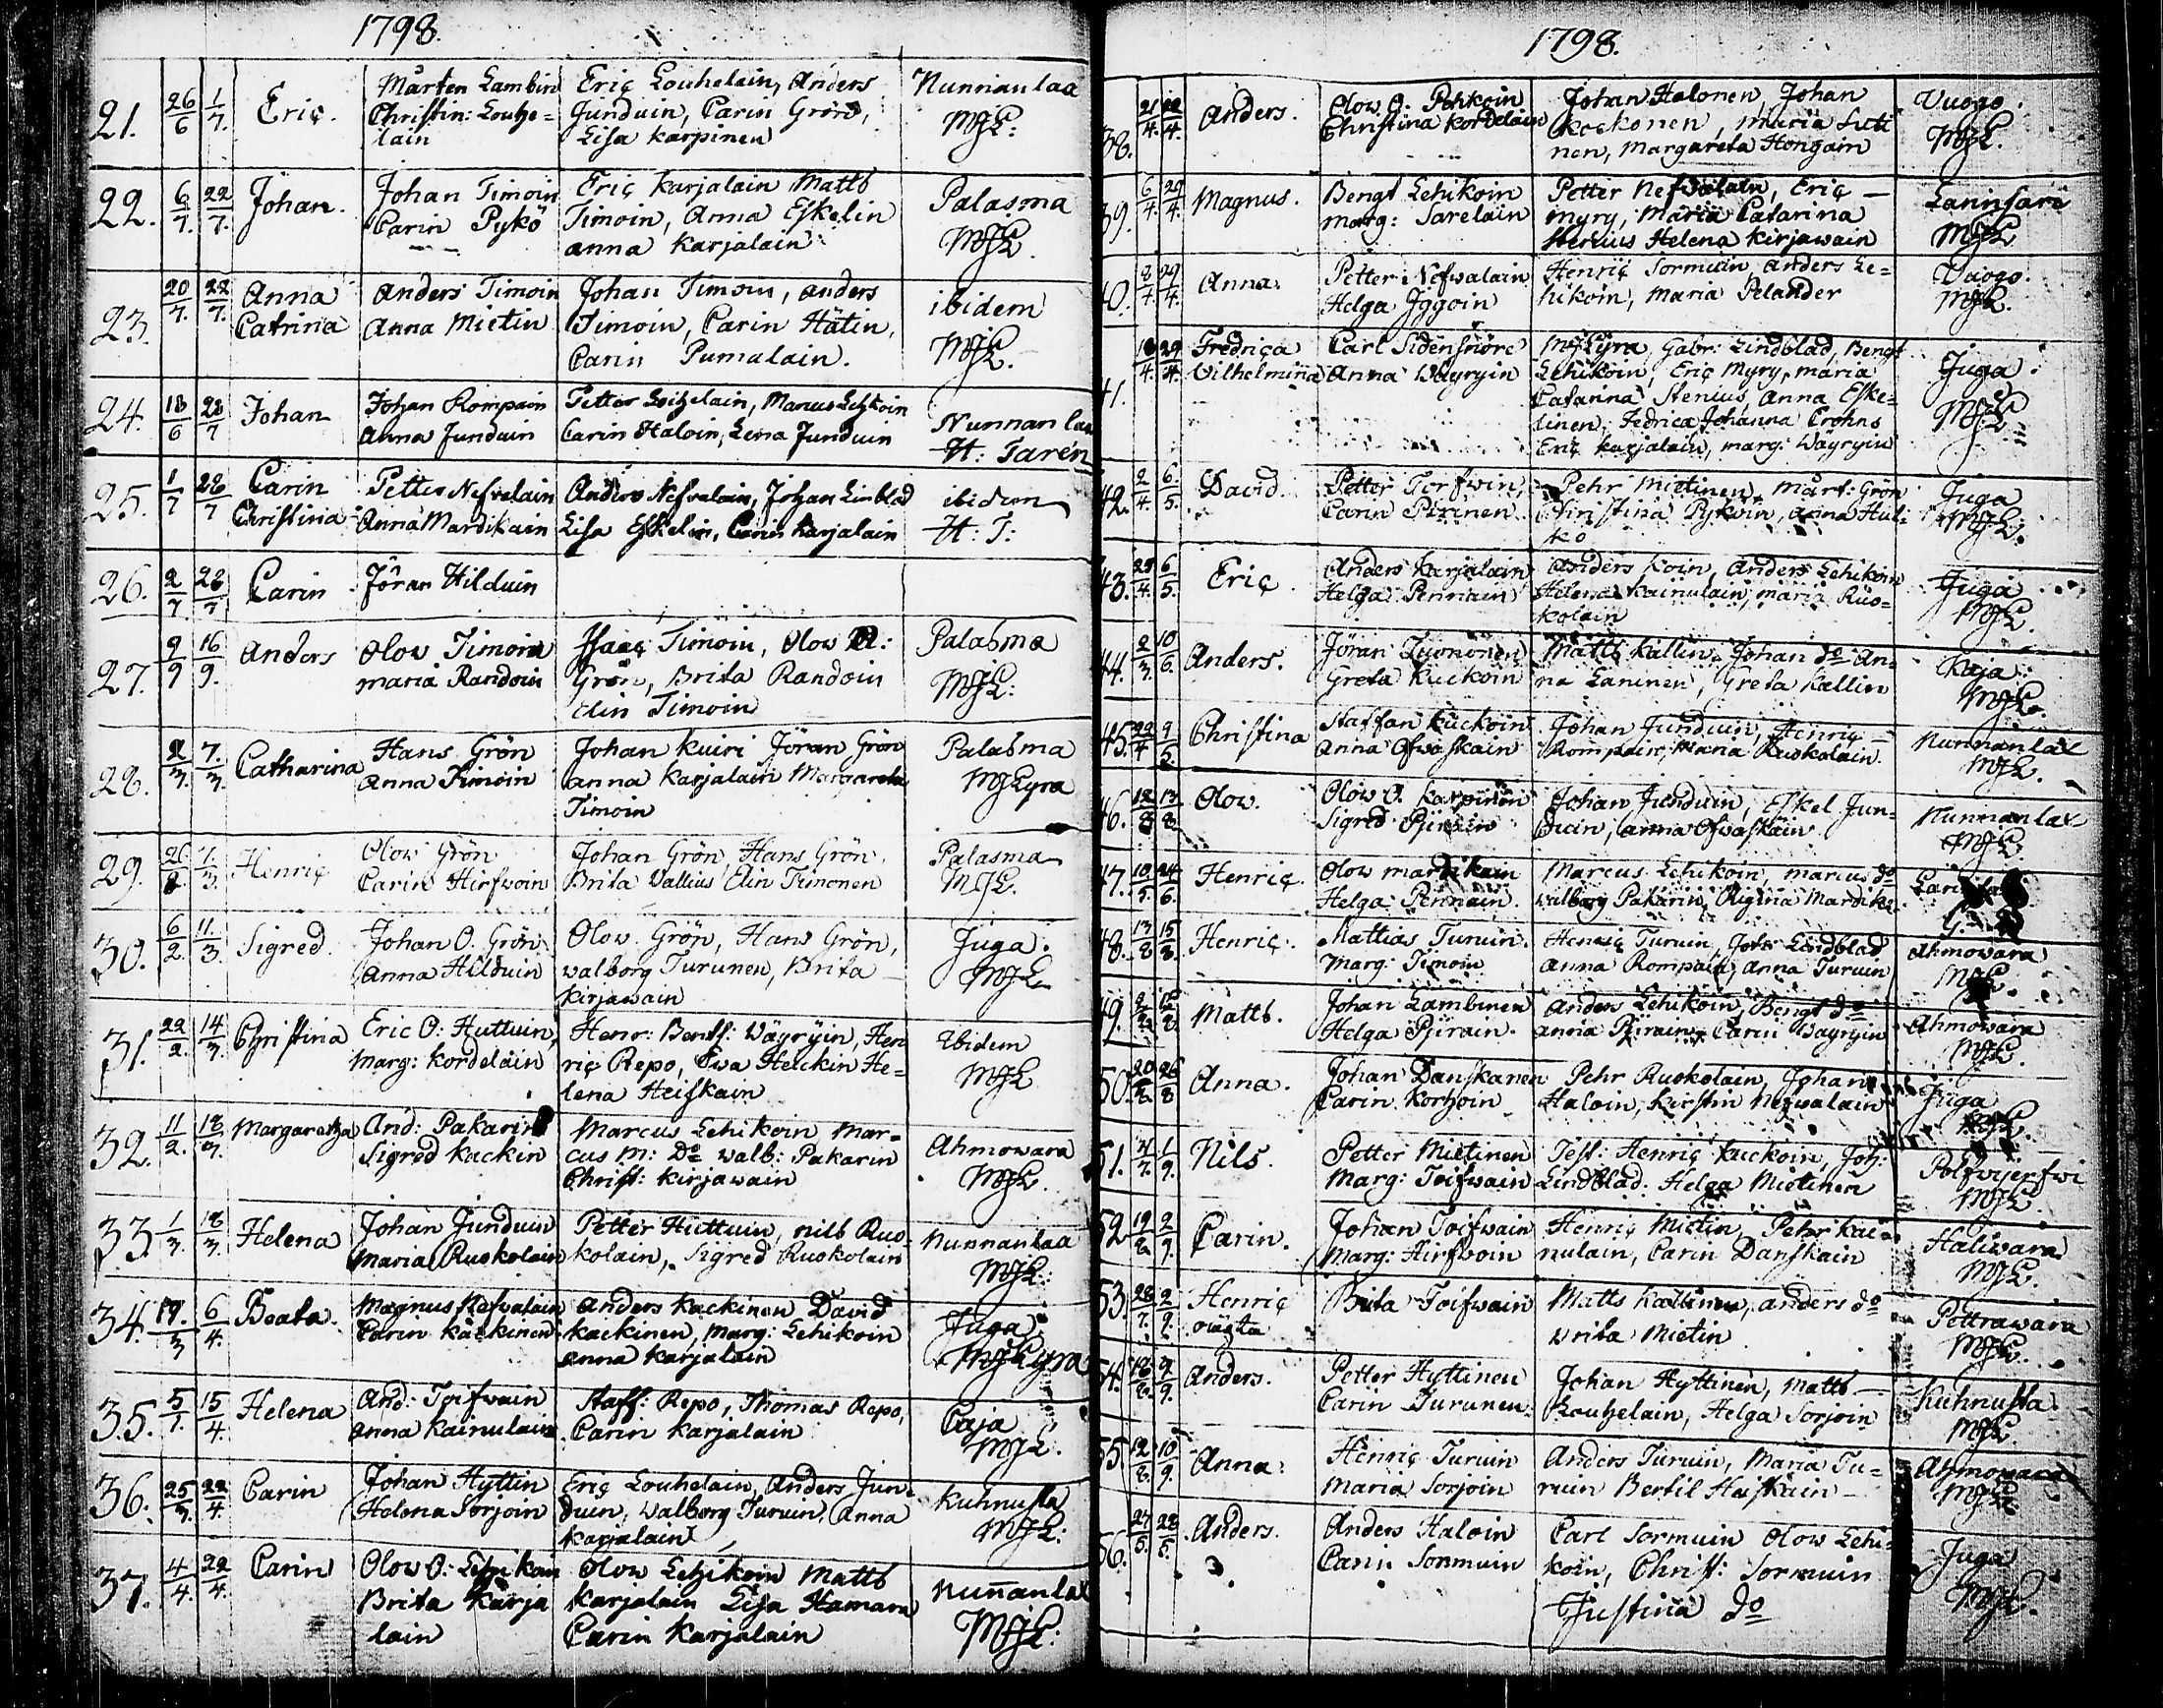 1798.
21. 26/6 1/7. Eric. Mårten Lambin Eric Louhelain, Anders Nunnanlaa
Christin: Louhe= Junduin, Carin Grön, MJL:
lain Lisa Karpinen
22. 6/7. 22/7. Johan. Johan Timoin Eric Karjalain Matts Palasma
Carin Pykö Timoin, Anna Eskelin MJL.
anna Karjalain
23. 20/7. 22/7. Anna Anders Timoin Johan Timoin, anders ibidem
Catrina Anna Mietin Timoin, Carin Hätin, MJL.
Carin Pumalain.
24. 18/6 28/7 Johan Johan Rompain Petter Loihelain, Marcus Lehikoin Nunnanlaa
Anna Junduin Carin Haloin, Lena Junduin H: Tarén
25. 1/7 28/7 Carin Petter Nefvalain Anders Nefvalain, Johan Linblad ibidem
Christina Anna Mardikain Lisa Eskelin, Carin Karjalain H: T:
26. 2/7 28/7 Carin Jöran Hilduin
27. 9/9 16/9. Anders Olov Timoin Isaac Timoin, Olow Palasma
maria Randoin Grön, Brita Randoin MJL:
Elin Timoin
28. 2/3. 7./3. Catharina Hans Grön Johan Kuiri Jöran Grön Palasma
Anna Timoin anna Karjalain Margareta MJLyra
Timoin
29. 7./3. Henric Olow Grön Johan Grön, Hans Grön, Palasma
Carin Hirfwoin Brita Wallius Elin Timonen MJL.
30. 6/2. 11./3. Sigred. Johan O. Grön Olow Grön, Hans Grön, Juga.
Anna Hilduin walborg Turunen, Brita MJL.
Kirjawain
31. 22/2. 14/3. Christina Eric O: Huttuin, Henr: Bentss: Wäyryin, Hen Ibidem
Marg: Kordelain ric Repo, Ewa Heickin He= MJL
lena Heiskain
32. 11/2. 18/3. Margaretha And: Pakarin Marcus Lehikoin Mar= Ahmowara
Sigred Kackin cus M: Do walb: Pakarin MJL.
Christ: Kirjawain
33. 1/3. 18/3. Helena Johan Junduin Petter Huttuin, nils Ruo Nunnanlaa
Maria Ruokolain kolain, Sigred Ruokolain MJL:
34. 17./3 6/4. Beata. Magnus Nefvalain Anders Kackinen David Juga.
Carin Käckinen Kackinen, Marg: Lehikoin MJLyra
anna Karjalain
35. 5/1. 15/4. Helena And: Toifwain Staff: Repo, Thomas Repo, Caja
Anna Kainulain. Carin Karjalain MJL.
36. 25/3. 22/4. Carin Johan Hyttin Eric Louhelain, Anders Jun= Kuhnusta
Helena Sorjoin duin, Walborg Turuin, Anna MJL:
Karjalain
37. 4/4. 22/4. Carin Olow O: Lehikoin Olow Lehikoin Matts Nunanlax
Brita Karja Karjalain Lisa Hamara MJL.
lain Carin Karjalain
1798.
38. 21/4. 22/4. Anders. Olow O: Pohkoin Johan Halonen, Johan Vuogo.
Christina Kordelain Kockonen, Maria Suti MJL.
nen, Margareta Hongain
39. 6/4. 29/4. Magnus. Bengt Lehikoin Petter Nefwalain, Eric Laninsari
marg: Sarelain Myry, Maria Catarina MJL
Stenius Helena Kirjawain
40. 2/4. 29/4. Anna. Petter Nefwalain Henric Sormuin, Anders Le= Vuogo.
Helga Iggoin hikoin, Maria Pelander MJL.
41. 29/4. Fredrica Carl Sidensnöre MJLyra, Gabr: Lindblad, Bengt Juga.
Vilhelmina Anna Wäyryin Lehikoin, Eric Myry, maria MJL
Catarina Stenius, Anna Eske=
linen, Fedrica Johanna Crohns
Eric Karjalain, marg: Wäyryin
42. 2/4. 6./5. David. Petter Torfwin, Pehr Mietinen, Mårt: Grön Juga
Carin Pirinen Christina Pykoin, Anna Huli= MJL.
ko
43. 29/4. 6/5. Eric Anders Karjalain Anders Koin, Anders Lehikoin Juga
Helga Pennain Helena Kainulain, maria Ruo= MJL.
kolain
44. 2/3. 10/6. Anders. Jöran Matts Kallin, Johan do An= Kaja.
Greta Kuckoin na Laninen, Greta Kallin MJL.
45. 22/4 9/5. Christina Staffan Kuckoin Johan Junduin, Henric Nunnanlax
Anna Ofwaskain Rompain, Maria Ruokolain. MJL.
46. 12/8 13/8. Olow. Olow O. Karpinen Johan Junduin, Eskel Jun= Nunnanlax
Sigred duin, Anna Ofwaskain MJL.
47. 10/5. 24/6. Henric. Olow Mardikain Marcus Lehikoin, Marcus do
Helga Pennain. walborg Pakarin, Rigina Mardika
48. 13/8 15/8. Henric. Mattias Turuin. Henric Turuin, Joh: Lindblad Ahmowara
Marg: Timoin Anna Rompain, anna Turuin MJL
49. Matts. Johan Lambinen Anders Lehikoin, Bengt do Ahmowara
Helga Pjirain. anna Pjirain, Carin Wäyryin MJL.
50. 26/8 Anna. Johan Danskanen Pehr Ruokolain, Johan Juga
Carin Korhoin Haloin, Kirstin Nefwalain MJL.
51. 4/7. 1/9. Nils. Petter Mietinen Test: Henric Kuckoin, Joh: Polfvijerfwi
Marg: Toifwain Lindblad. Helga Mietinen MJL.
52. 19/8. 2/9. Carin. Johan Toifwain Henric Mietin, Pehr Kai= Haliwara
Marg: Hirfwoin nulain, Carin Danskain MJL.
53. 28/7. 2/9. Henric Brita Toifwain Matts Kallinen, anders do Pettrawara
oiägta Brita Mietin MJL.
54. 18/8. 9/9. Anders. Petter Hyttinen Johan Hyttinen, Matts Kuhnusta.
Carin Turunen. Louhelain, Helga Sorjoin MJL.
55. 12/8. 10/9. Anna: Henric Turuin Anders Turuin, Maria Tu= Ahmowara
Maria Sorjoin ruin Bertil Heiskain MJL.
56. 27/5. 28/5. Anders. Anders Haloin Carl Sormuin Olow Lehi= Juga
Carin Sormuin koin, Christ: Sormuin MJL.
Justina do